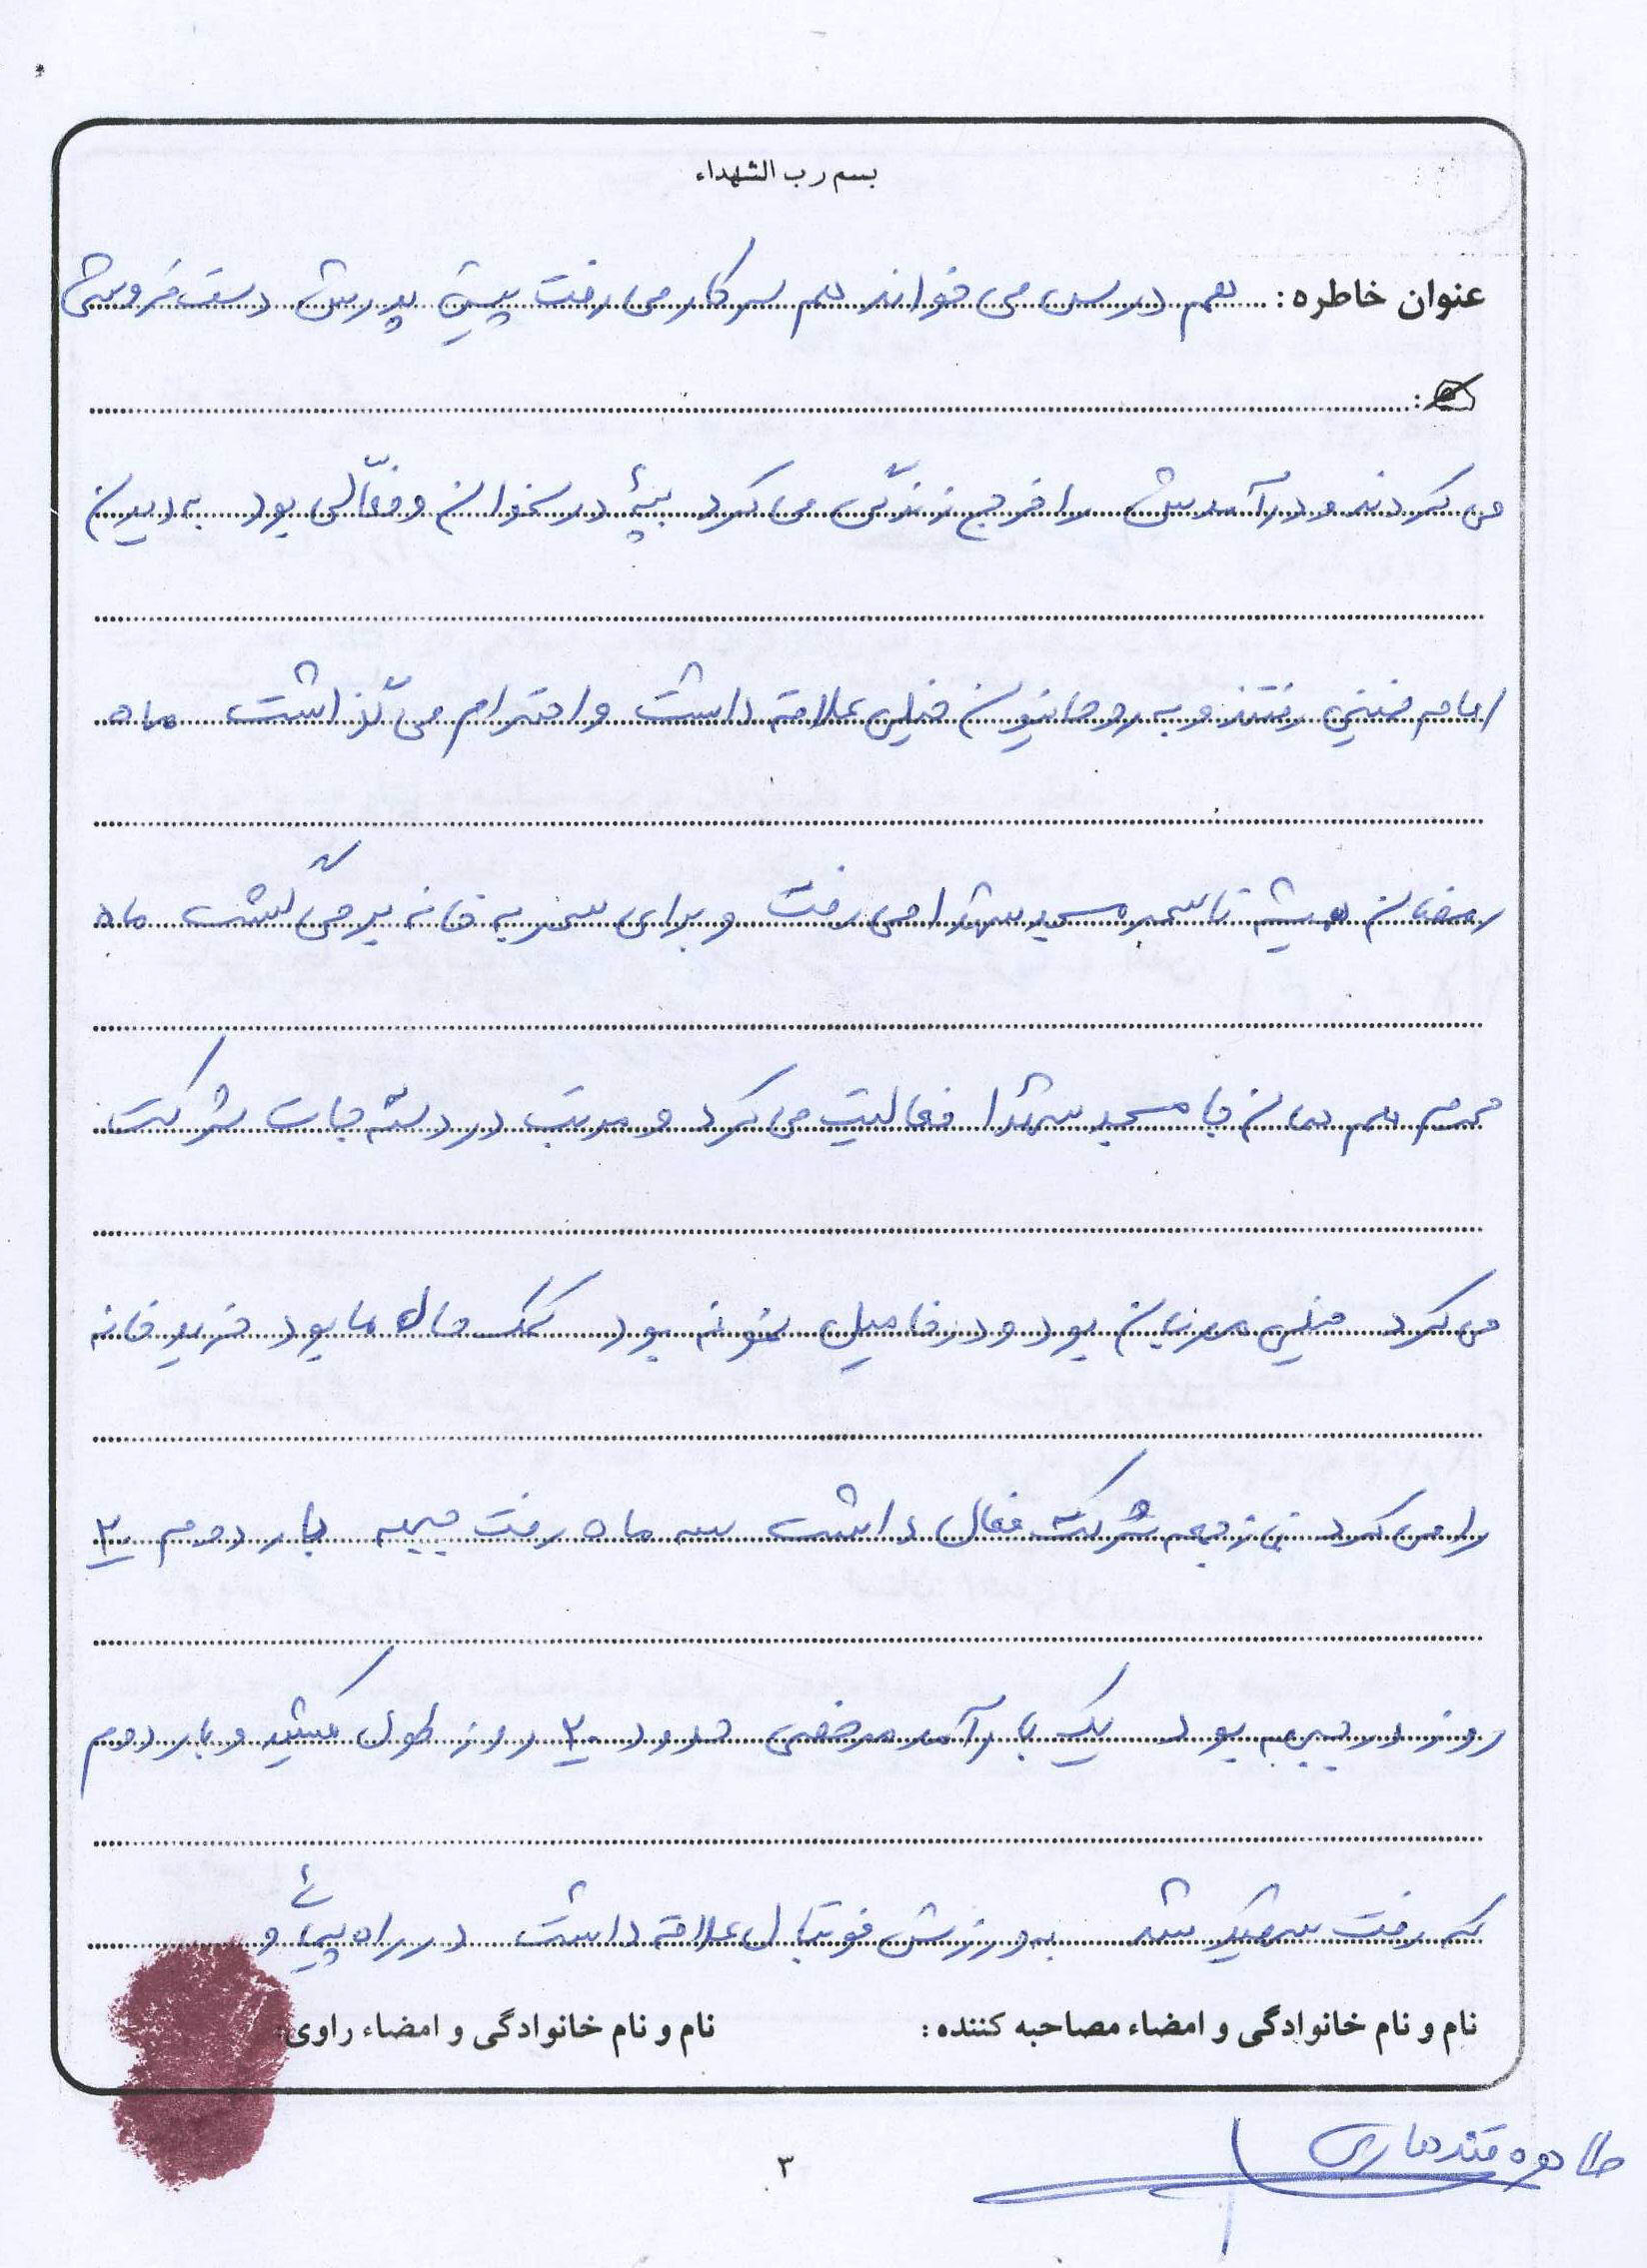 بسم رب الشهداء
عنوان خاطره: هم درس می خواند هم سر کار می رفت پیش پدرش دست فروشی
می کردند و درآمدش را خرج زندگی می کرد بچۀ درسخوان و فعّالی بود به دیدن
امام خمینی رفتند و به روحانیون خیلی علاقه داشت و احترام می گذاشت ماه
رمضان همیشه تا سحر مسجد شهدا می رفت و برای سحر به خانه برمی گشت ماه
محرم هم همان جا مسجد شهدا فعالیت می کرد و مرتب در دسته جات شرکت
می کرد خیلی مهربان بود و در فامیل نمونه بود کمک حال ما بود خرید خانه
را می کرد نماز جمعه شرکت فعال داشت سه ماه رفت جبهه بار دوم ۲۰
روز در جبهه بود یک بار آمد مرخصی حدود ۲۰ روز طول کشید و بار دوم
که رفت شهید شد به ورزش فوتبال علاقه داشت در راه پیمائی و
نام و نام خانوادگی و امضاء مصاحبه کننده:
نام و نام خانوادگی و امضاء راوی:
طاهره قندهاری
۳